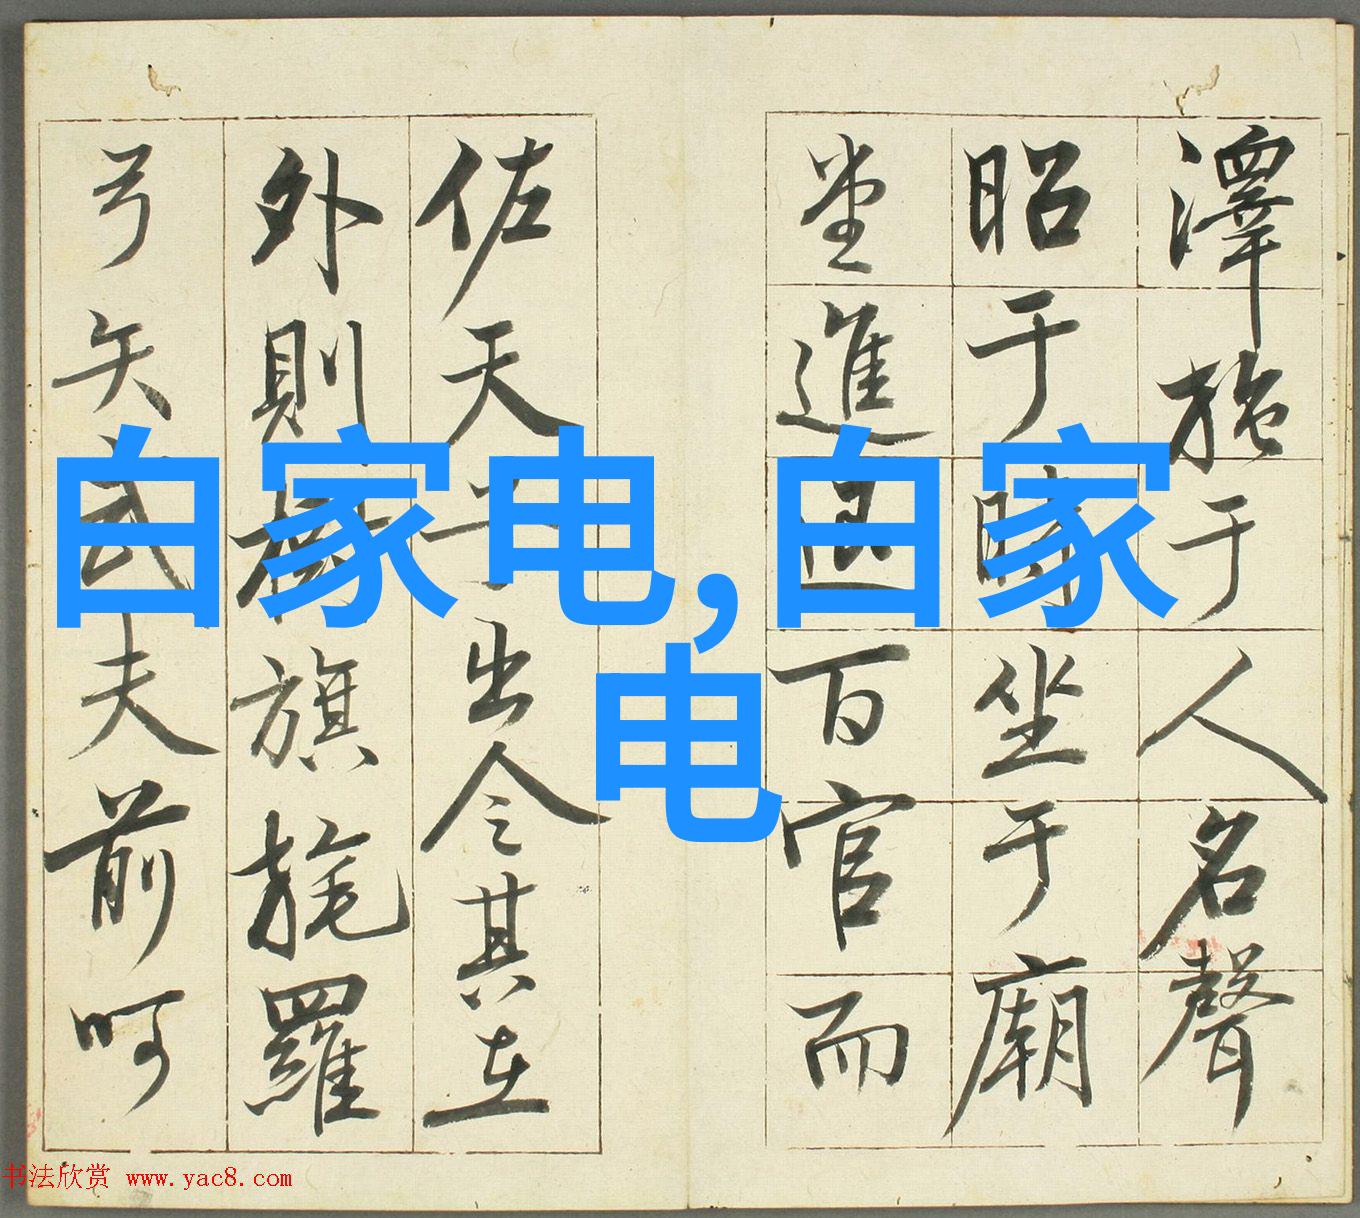 澤施于人名聲
昭于時坐于廟
堂進退百官而
佐天子出令其在
外則樹旗旄羅
弓矢武夫前呵
白家电,白家
电
书法欣赏 www.yac8.com